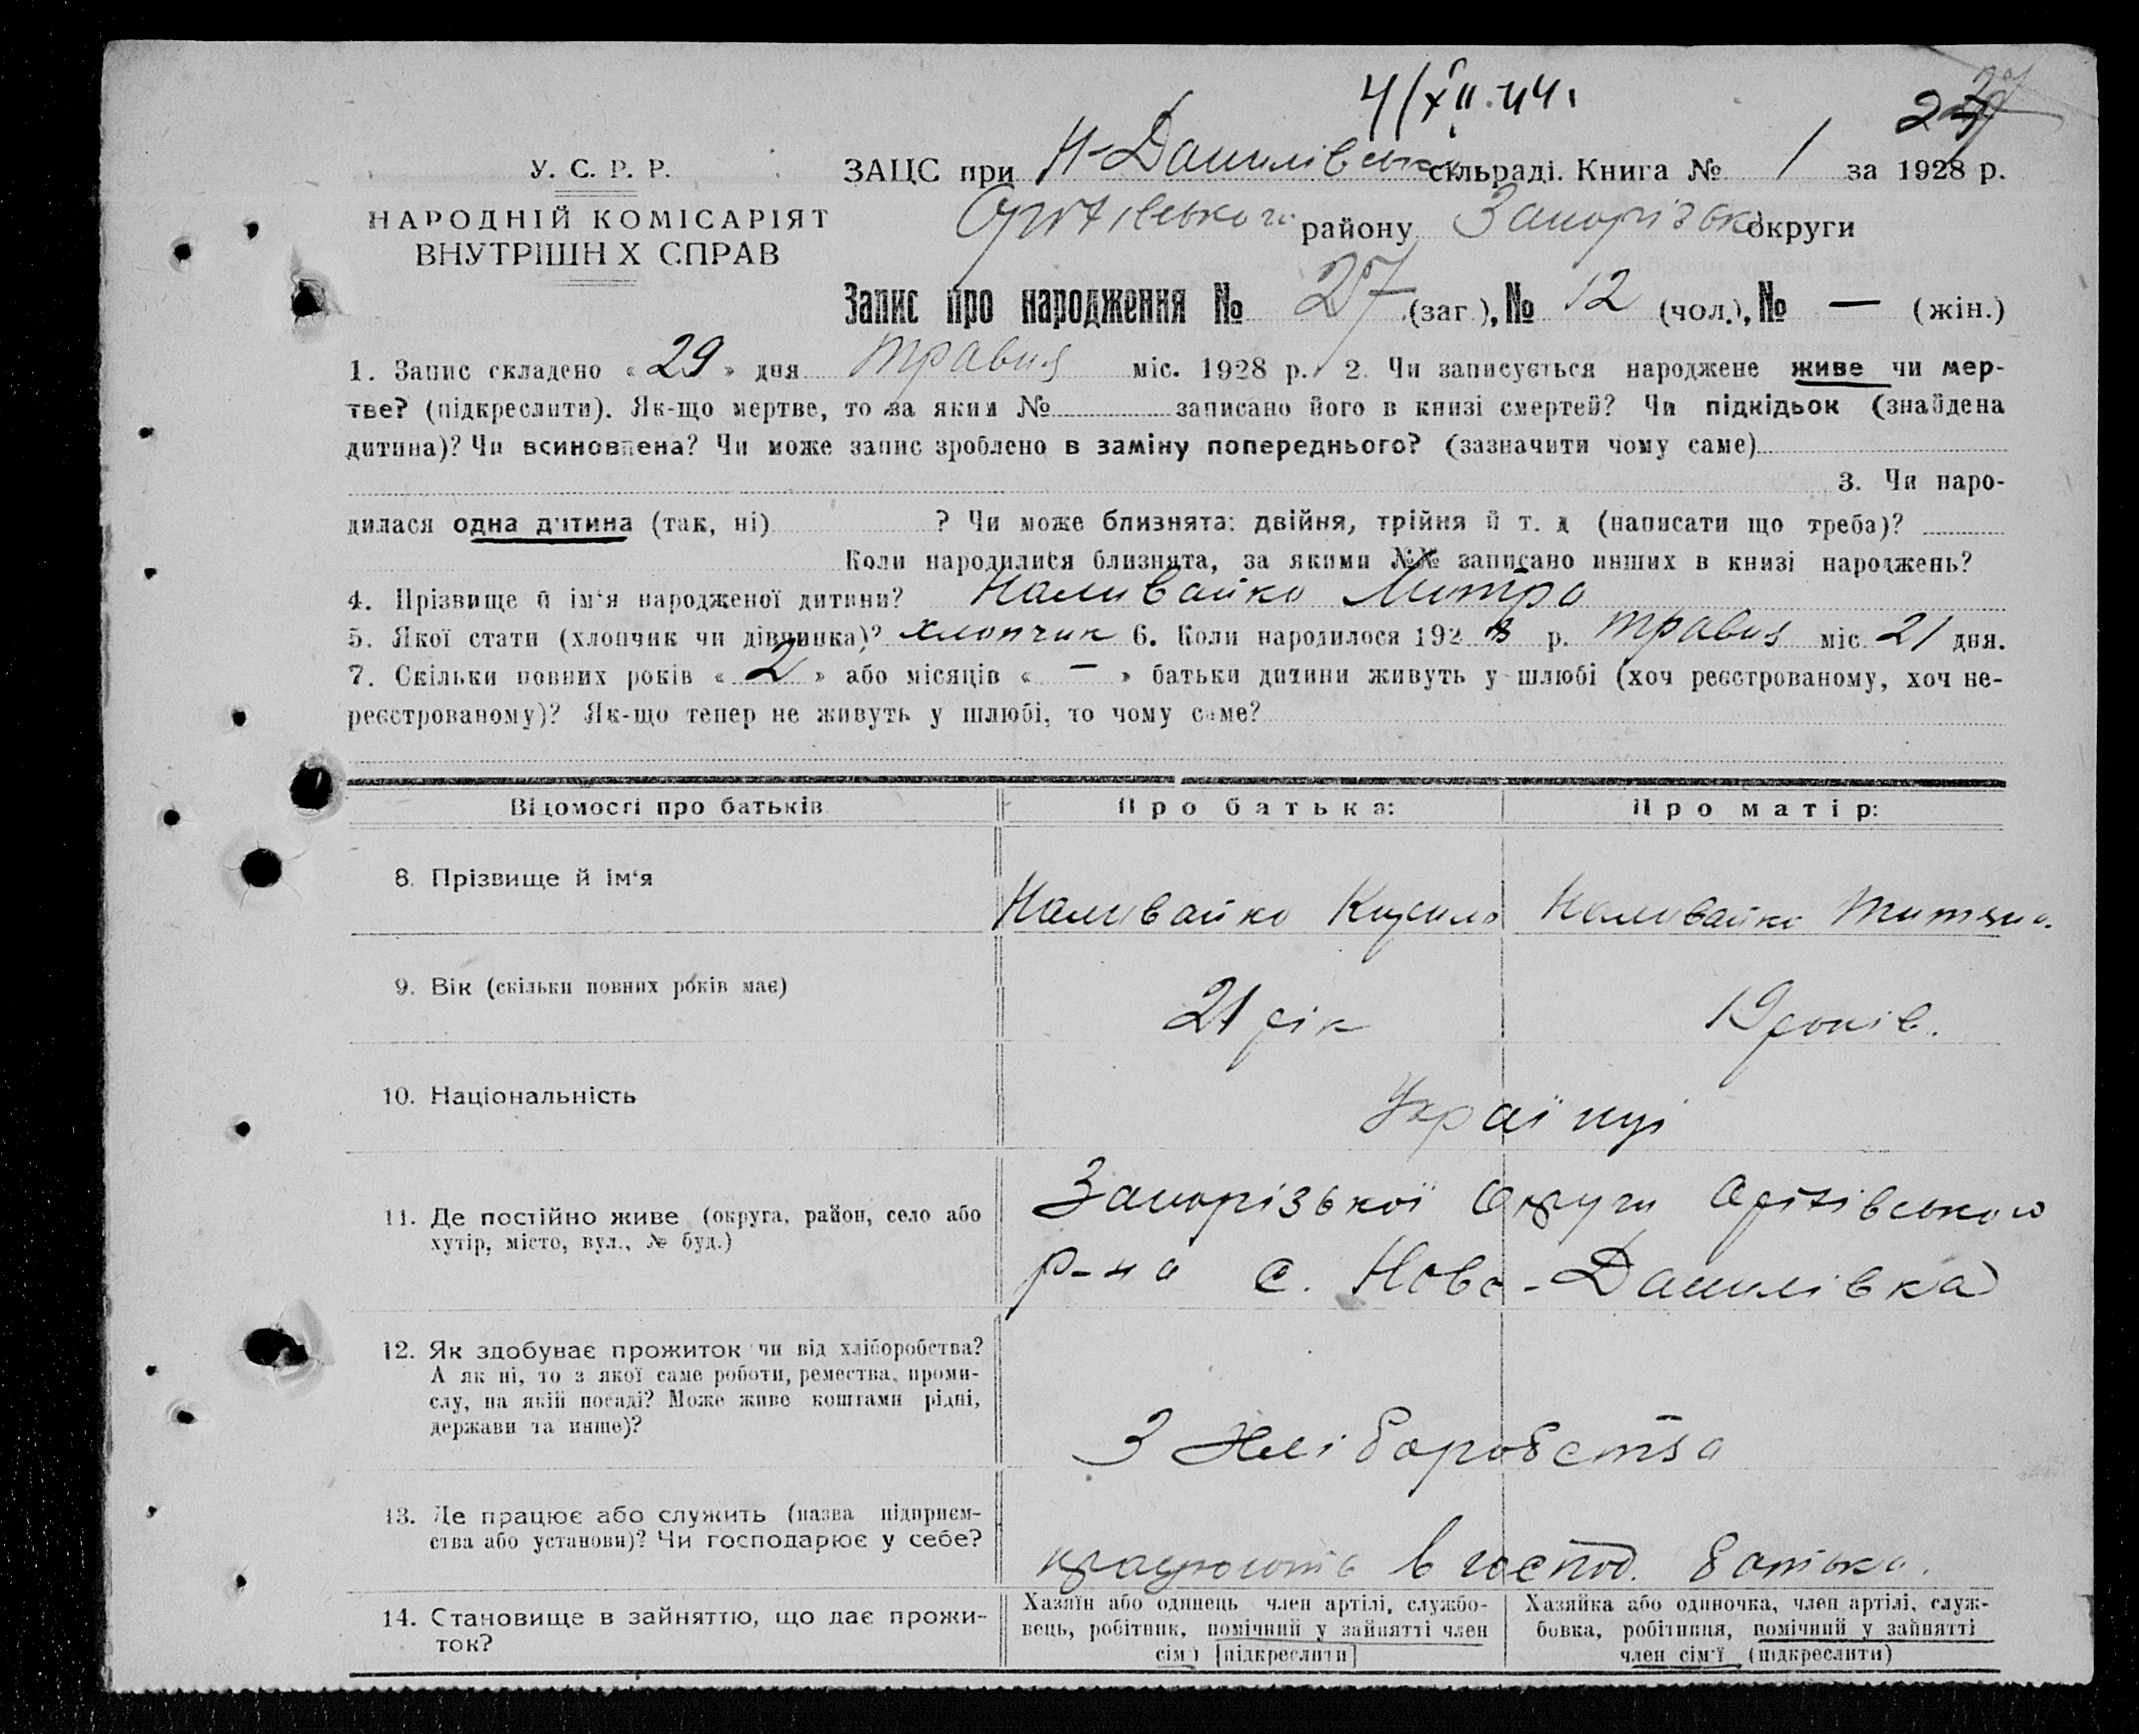 4/XII.44.
27
У. С. Р. Р.
НАРОДНІЙ КОМІСАРІЯТ
ВНУТРІШН Х СПРАВ
ЗАЦС при Н-Данилівськ сільраді. Книга № 1 за 1928 р.
району Запорізьк округи
Запис про народження № 27 (заг.), № 12 (чол.), № — (жін.)
1. Запис складено «29» дня травня міс. 1928 р. 2. Чи записується народжене живе чи мер-
тве? (підкреслити). Як-що мертве, то за яким № записано його в книзі смертей? Чи підкідьок (знайдена
дитина)? Чи всиновлена? Чи може запис зроблено в заміну попереднього? (зазначити чому саме)
3. Чи наро-
дилася одна дитина (так, ні) ? Чи може близнята: двійня, трійня й т. д (написати що треба)?
Коли народилися близнята, за якими №№ записано инших в книзі народжень?
4. Прізвище й ім'я народженої дитини? Наливайко Митро
5. Якої стати (хлопчик чи дівчинка)? хлопчик 6. Коли народилося 1928 р. травня міс. 21 дня.
7. Скільки повних років «2» або місяців «—» батьки дитини живуть у шлюбі (хоч реєстрованому, хоч не-
реєстрованому)? Як-що тепер не живуть у шлюбі, то чому саме?
Відомості про батьків
Про батька:
Про матір:
8. Прізвище й ім'я
Наливайко Кирило
Наливайко Титяна.
9. Вік (скільки повних років має)
21 рік
19 років.
10. Національність
Українці
11. Де постійно живе (округа, район, село або
хутір, місто, вул., № буд.)
Запорізької округи
р-на с. Ново-Данилівка
12. Як здобуває прожиток чи від хліборобства?
А як ні, то з якої саме роботи, ремества, проми-
слу, на якій посаді? Може живе коштами рідні,
держави та инше)?
З Хліборобства
13. Де працює або служить (назва підприєм-
ства або установи)? Чи господарює у себе?
працюють в господ. батька.
14. Становище в зайняттю, що дає прожи-
ток?
Хазяїн або одинець член артілі, службо-
вець, робітник, помічний у зайнятті член
сім'ї [підкреслити]
Хазяйка або одиночка, член артілі, служ-
бовка, робітниця, помічний у зайнятті
член сім'ї (підкреслити)